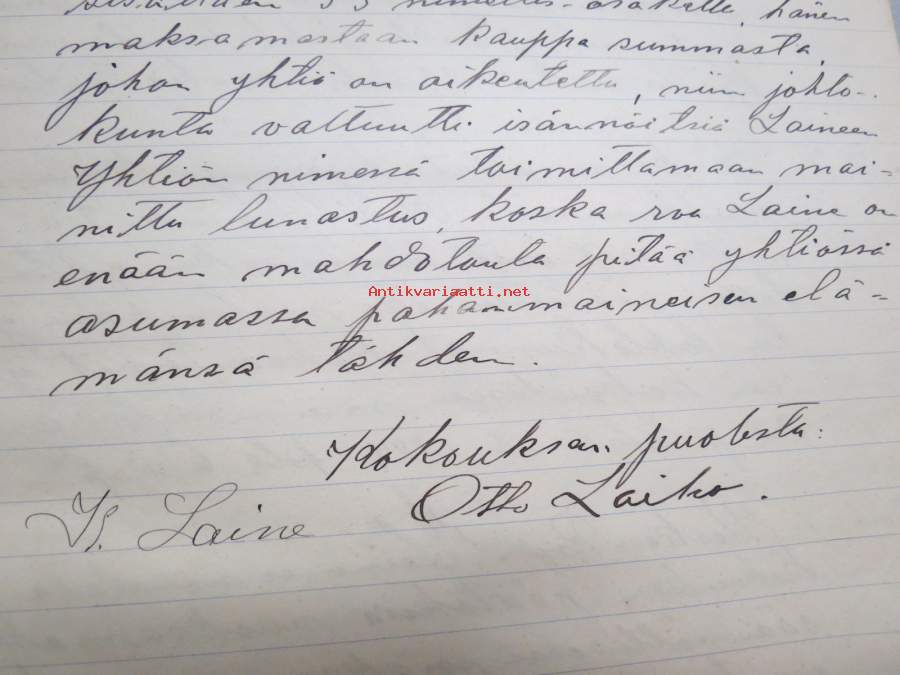 sisältäen 55 nimellis-osaketta, hänen
maksamastaan kauppa summasta,
johon yhtiö on oikeutettu, niin johto-
kunta valtuutti isännöitsiä Laineen
Yhtiön nimessä toimittamaan mai=
nittu lunastus, koska rva Laine on
enään mahdotonta pitää yhtiössä
Antikvariaatti.net
asumassa pahanmaineisen elä=
mänsä tähden.
Kokouksen puolesta:
Otto Laiho.
K. Laine